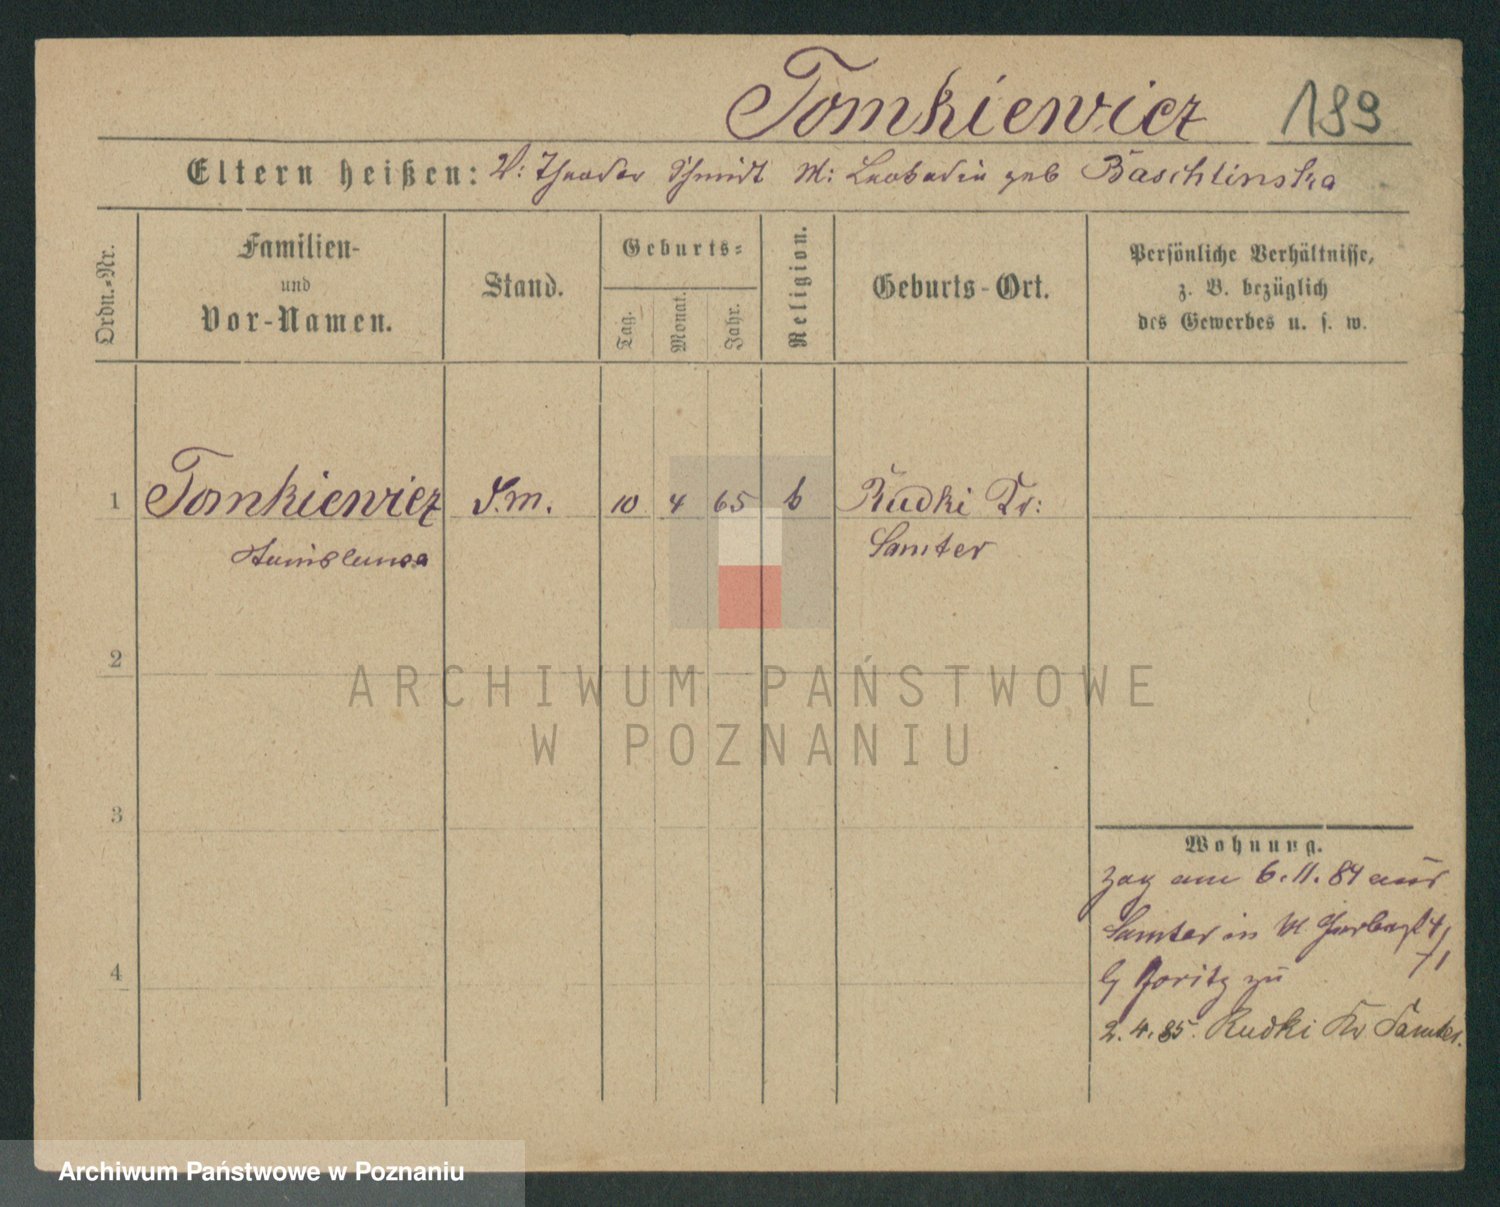 Tomkiewicz 189
Eltern heißen: V: Theodor Schmidt M: Leokadia geb Baschlinska
Ordn.-Nr.
Familien-
und
Vor-Namen.
Stand.
Geburts-
Tag. Monat. Jahr.
Religion.
Geburts-Ort.
Persönliche Verhältnisse,
z. B. bezüglich
des Gewerbes u. s. w.
1 Tomkiewicz 10 4 65 Rudki Kr:
Samter
2
3
4
Wohnung.
zog am 6.11.84 aus
Samter in
zu
2.4.85. Rudki Kr Samter.
ARCHIWUM PAŃSTWOWE
W POZNANIU
Archiwum Państwowe w Poznaniu